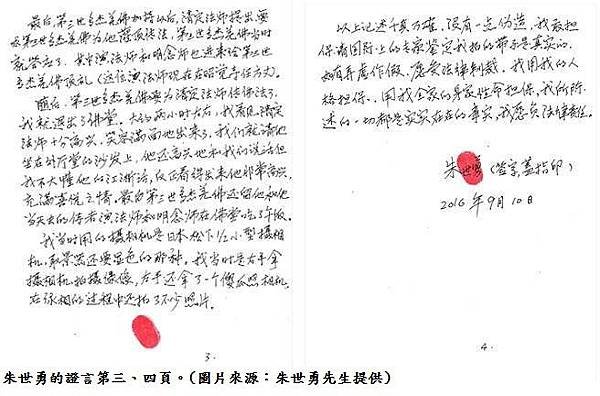 最后,第三世多杰羌佛加持以后,清定法师提出要
求第三世多杰羌佛为他灌顶传法,第三世多杰羌佛当时
就答应了。其中演法师和明念师也进来给第三世
多杰羌佛顶礼(这位演法师现在昭觉寺任方丈)。
随后,第三世多杰羌佛要为清定法师传佛法了,
我就退出了佛堂。大约两小时左右,我看见清定
法师十分高兴,笑容满面地出来了。我们就请他
坐在外厅堂的沙发上,他还高兴地和我们说话但
我不大懂他的江浙话,反正看得出来他非常高兴,
充满喜悦之情,最后第三世多杰羌佛还留他和他
当天去的侍者演法师和明念师在佛堂吃了午饭。
我当时用的摄相机是日本松下1/2小型摄相
机,取景器还是黑色的那种。我当时是右手拿
摄相机拍摄录像,左手还拿了一个傻瓜照相机,
在录相的过程中还拍了不少照片。
3.
以上记述千真万确,没有一点伪造,我敢担
保请国际上的专家鉴定我拍的带子是真实的。
如有弄虚作假,愿受法律制裁,我用我的人
格担保,用我全家的身家性命担保,我所陈
述的一切都是实实存在的事实,我愿负法律责任。
朱世勇(签字盖指印)
2016年9月10日
4.
朱世勇的證言第三、四頁。(圖片來源:朱世勇先生提供)